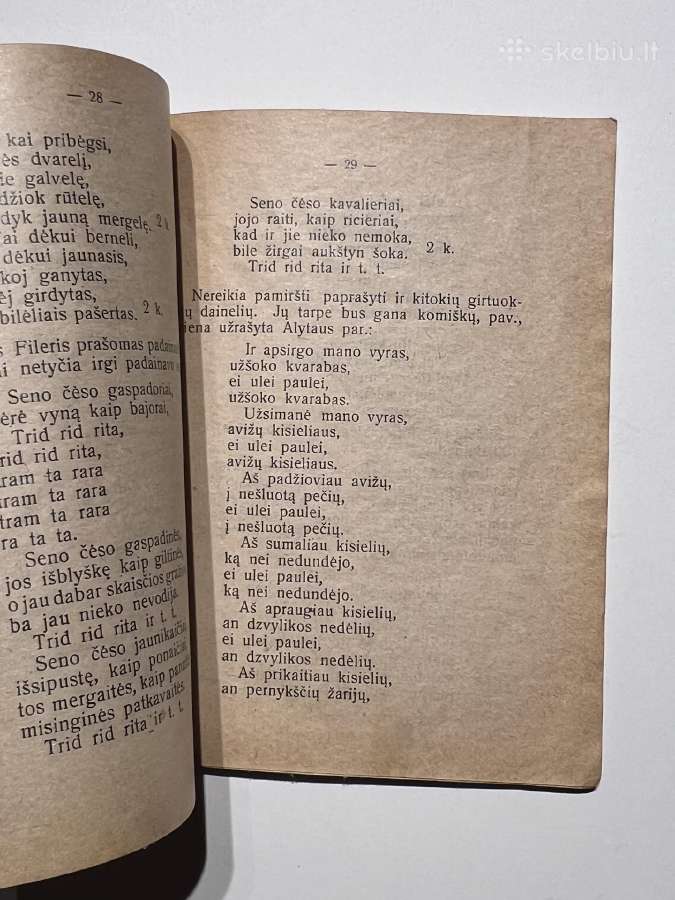 skelbiu.lt
— 28 —
kai pribėgsi,
ės dvarelį,
ie galvelę,
džiok rūtelę,
dyk jauną mergelę. 2 k.
ai dėkui berneli,
dėkui jaunasis,
koj ganytas,
ėj girdytas,
bilėliais pašertas. 2 k.
s Fileris prašomas padainuo
ai netyčia irgi padainavo
Seno čėso gaspadoriai,
ėrė vyną kaip bajorai,
Trid rid rita,
rid rid rita,
tram ta rara
tram ta rara
tram ta rara
ra ta ta.
Seno čėso gaspadinės,
jos išblyškę kaip giltinės,
o jau dabar skaisčios
ba jau nieko nevodija.
Trid rid rita ir t. t.
Seno čėso jaunikaičiai,
išsipustę, kaip ponaičiai
tos mergaitės, kaip
misinginės patkavaitės.
Trid rid rita ir t. t.
— 29 —
Seno čėso kavalieriai,
jojo raiti, kaip ricieriai,
kad ir jie nieko nemoka,
bile žirgai aukštyn šoka. 2 k.
Trid rid rita ir t. t.
Nereikia pamiršti paprašyti ir kitokių girtuok-
ų dainelių. Jų tarpe bus gana komiškų, pav.,
iena užrašyta Alytaus par.:
Ir apsirgo mano vyras,
užšoko kvarabas,
ei ulei paulei,
užšoko kvarabas.
Užsimanė mano vyras,
avižų kisieliaus,
ei ulei paulei,
avižų kisieliaus.
Aš padžioviau avižų,
į nešluotą pečių,
ei ulei paulei,
į nešluotą pečių.
Aš sumaliau kisielių,
ką nei nedundėjo,
ei ulei paulei,
ką nei nedundėjo.
Aš apraugiau kisielių,
an dzvylikos nedėlių,
ei ulei paulei,
an dzvylikos nedėlių.
Aš prikaitiau kisielių,
an pernykščių žarijų,